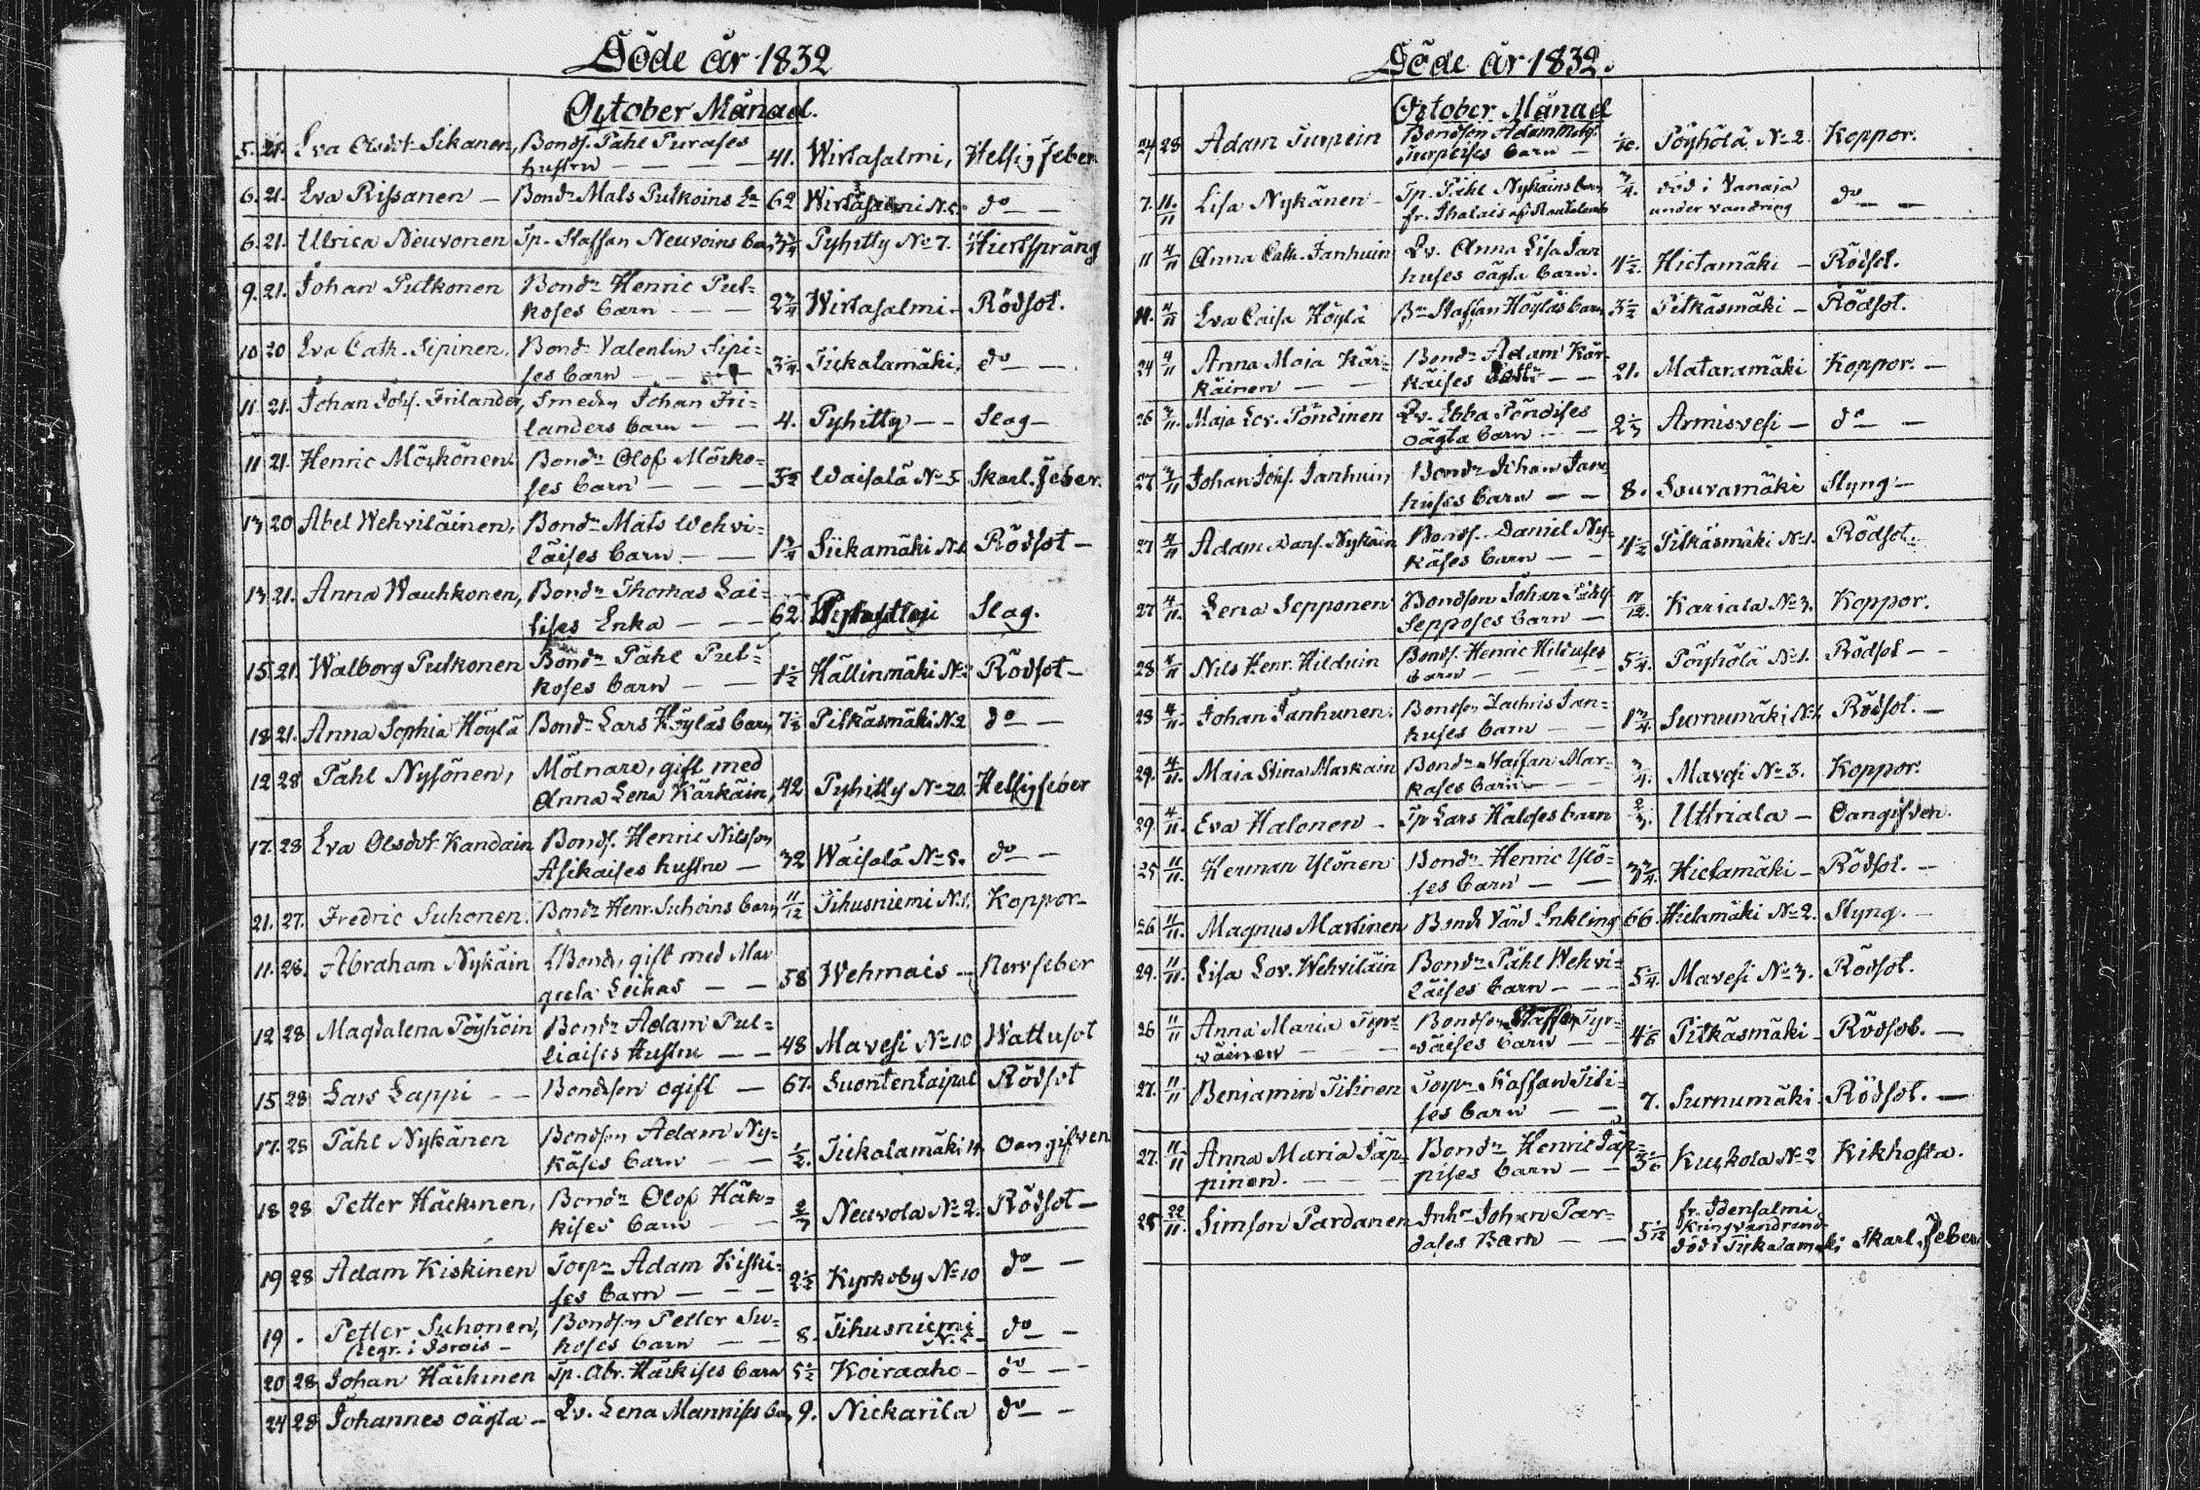 Döde år 1832
October Månad.
5. 21. Eva Olsdt. Sikanen, Bonds. Påhl Purases
hustru — — — 41. Wirtasalmi, Hetsig feber
6. 21. Eva Rissanen — Bondn Mats Putkoins Ea 62 Wirtasalmi do —
6. 21. Ulrica Neuvonen Tp. Staffan Neuvoins barn 3/4 Pyhitty No 7. Hiertsprång
9. 21. Johan Putkonen Bondn Henric Put-
koses barn — — 2 3/4 Wirtasalmi — Rödsot.
10 20 Eva Cath. Sipinen, Bondn Valentin Sipi-
ses barn — 3 1/4 Tiekalamäki, do —
11 21. Johan Johs. Frilander, Smeden Johan Fri-
landers barn — — 4. Pyhitty — — Slag —
11 21. Henric Möckönen. Bondn Olof Möcko-
ses barn — — — 5 1/2 Waisalä No 5 Skarl. feber.
13 20 Abel Wehviläinen, Bondn Mats Wehvi-
läises barn — — 1 3/4 Siikamäki No 1. Rödsot —
13 21. Anna Wauhkonen, Bondn Thomas Lai-
tises Enka — — 62. Slag.
15 21. Walborg Putkonen Bondn Påhl Put-
koses barn — — 1 1/2 Hällinmäki No 2 Rödsot —
18 21. Anna Sophia Höylä Bondn Lars Höyläs barn, Pitkäsmäki N2 do —
12 28 Påhl Nysönen, Mölnare, gift med
Anna Lena Kärkäin, 42 Pyhitty No 20 Hetsig feber
17. 28 Eva Olsdt. Kandain Bonds. Henric Nilsson
Asikaises hustru — 32 Waisalä No 5. do —
21. 27. Fredric Suhonen. Bondn Henr. Suhoins barn 11/12 Tihusniemi N.1. Koppor —
11. 28. Abraham Nykäin Bond, gift med Mar
greta Leikas — — 58 Wehmais — Nervfeber
12 28 Magdalena Pöyhöin Bondn Adam Pul-
liaises Hustru — — 48 Mavesi No 10 Wattusot
15 28 Lars Lappi — — Bondson ogift — 67. Suontentaipal Rödsot
17. 28 Påhl Nykänen Bondson Adam Ny-
käses barn — — 1/2. Tiekalamäki 14. Oangifven
18 28 Petter Häckinen, Bondn Olof Häk-
kises barn — — 2/3 Neuvola No 2. Rödsot —
19 28 Adam Kiskinen Torpn Adam Kiski-
ses barn — — — 2 1/2 Kyrkoby No 10 do —
19 . Petter Suhonen, Bondson Petter Su-
begr. i Jorois — hoses barn — — 8. Tihusniemi do —
20 28 Johan Häckinen Tp. Abr. Häckises barn 5 1/2 Koiraaho — do —
24 28 Johannes oägta — Qv. Lena Mannises ba, 9. Nickarila do —
Döde år 1832.
October Månad
24 28 Adam Turpein Bondson Adam Mats.
Turpeises barn — Pöyhölä No 2. Koppor.
7. 11/11 Lisa Nykänen — Tp. Påhl Nykäins barn 3/4. död i Vanaja do —
fr. Ihalais af Rautalamb under vandring
11 4/11 Anna Cath. Janhuin Qv. Anna Lisa Jan
huses oägta barn. 4 1/2. Hietamäki — Rödsot.
11. 4/11 Eva Caisa Höylä Bn Staffan Höyläs barn 3 1/2 Pitkäsmäki — Rödsot.
24 4/11 Anna Maja Kär- Bondn Adam Kär-
käinen — — käises — — 21. Mataramäki Koppor. —
26 4/11. Maja Lov. Pöndinen Qv. Ebba Pöndises
oägta barn — — 2 1/3 Armisvesi — do —
27 4/11 Johan Johs. Janhuin, Bondn Johan Jan
huses barn — — 8. Souvamäki Styng —
27 4/11 Adam Dans. Nykäin Bonds. Daniel Ny-
käses barn — — 4 1/2 Pitkäsmäki No 1. Rödsot.
27 4/11. Lena Sepponen Bondson Johan Johs.
Sepposes barn — 11/12. Kariala No 3. Koppor.
28 4/11 Nils Henr. Hilduin Bonds. Henric Hilduses
barn — — 5 1/4. Pöyhölä No 1. Rödsot — —
28 4/11. Johan Janhunen. Bondson Zachris Jan-
huses barn — — 1 3/4. Surnumäki, No 1, Rödsot. —
29. 4/11. Maia Stina Markain Bondn Staffan Mar-
kases barn — 3/4. Mavesi No 3. Koppor.
29. 4/11. Eva Halonen — Tp Lars Haloses barn 2/3. Uttriala — Oangifven.
25 11/11. Herman Ylönen Bondn Henric Ylö-
ses barn — — 3 3/4. Hietamäki — Rödsot. —
26 11/11. Magnus Martinen Bonds Vård Inkling 66. Hietamäki No 2. Styng. —
29. 11/11. Lisa Lov. Wehviläin Bondn Påhl Wehvi-
läises barn — — 5 1/4. Mavesi No 3. Rödsot.
26 11/11 Anna Maria Tyr- Bondson Staffan Tyr-
väinen — — väises barn — — 4 1/6 Pitkäsmäki — Rödsot. —
27. 11/11 Benjamin Titinen Torpn Staffan Titi-
ses barn — — 7. Surnumäki — Rödsot. —
27. 11/11 Anna Maria Jäp- Bondn Henric Jäp-
pinen. — — — pises barn — — 3 1/6 Kuckola No 2 Kikhosta.
25 22/11. Simson Pardanen Inhr Johan Par-
dases Barn — — 5 1/12 fr. Idensalmi
kringvandrand
död i Tiekalamäki Skarl. Feber